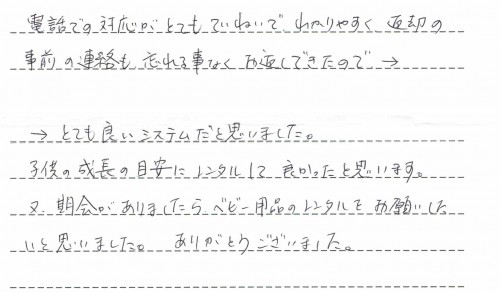 電話での対応がとてもていねいで わかりやすく 返却の
事前の連絡も 忘れる事なく お返しできたので →
→ とても良いシステムだと思いました。
子供の成長の目安に レンタルして 良かったと思います。
又 期会がありましたら ベビー用品のレンタルを お願いした
いと思いました。 ありがとうございました。